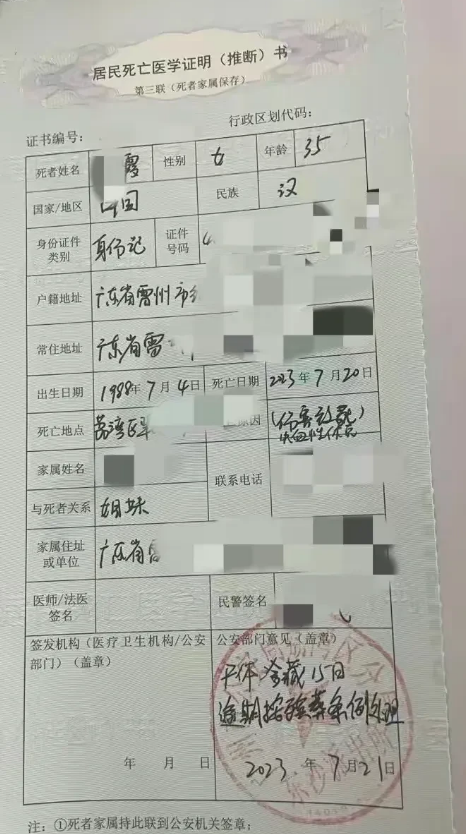 居民死亡医学证明（推断）书
第三联（死者家属保存）
证书编号： 行政区划代码：
死者姓名 霞 性别 女 年龄 35
国家/地区 中国 民族 汉
身份证件类别 身份证 证件号码 4
户籍地址 广东省雷州市
常住地址 广东省雷
出生日期 1988年7月4日 死亡日期 2023年7月20日
死亡地点 荔湾区 原因 (伤害致死) 失血性休克
家属姓名 联系电话
与死者关系 姐妹
家属住址或单位 广东省雷
医师/法医签名 民警签名
签发机构（医疗卫生机构/公安部门）（盖章） 公安部门意见（盖章）
尸体冷藏15日
逾期按殡葬条例处理
年 月 日 2023年7月21日
注：①死者家属持此联到公安机关签章；